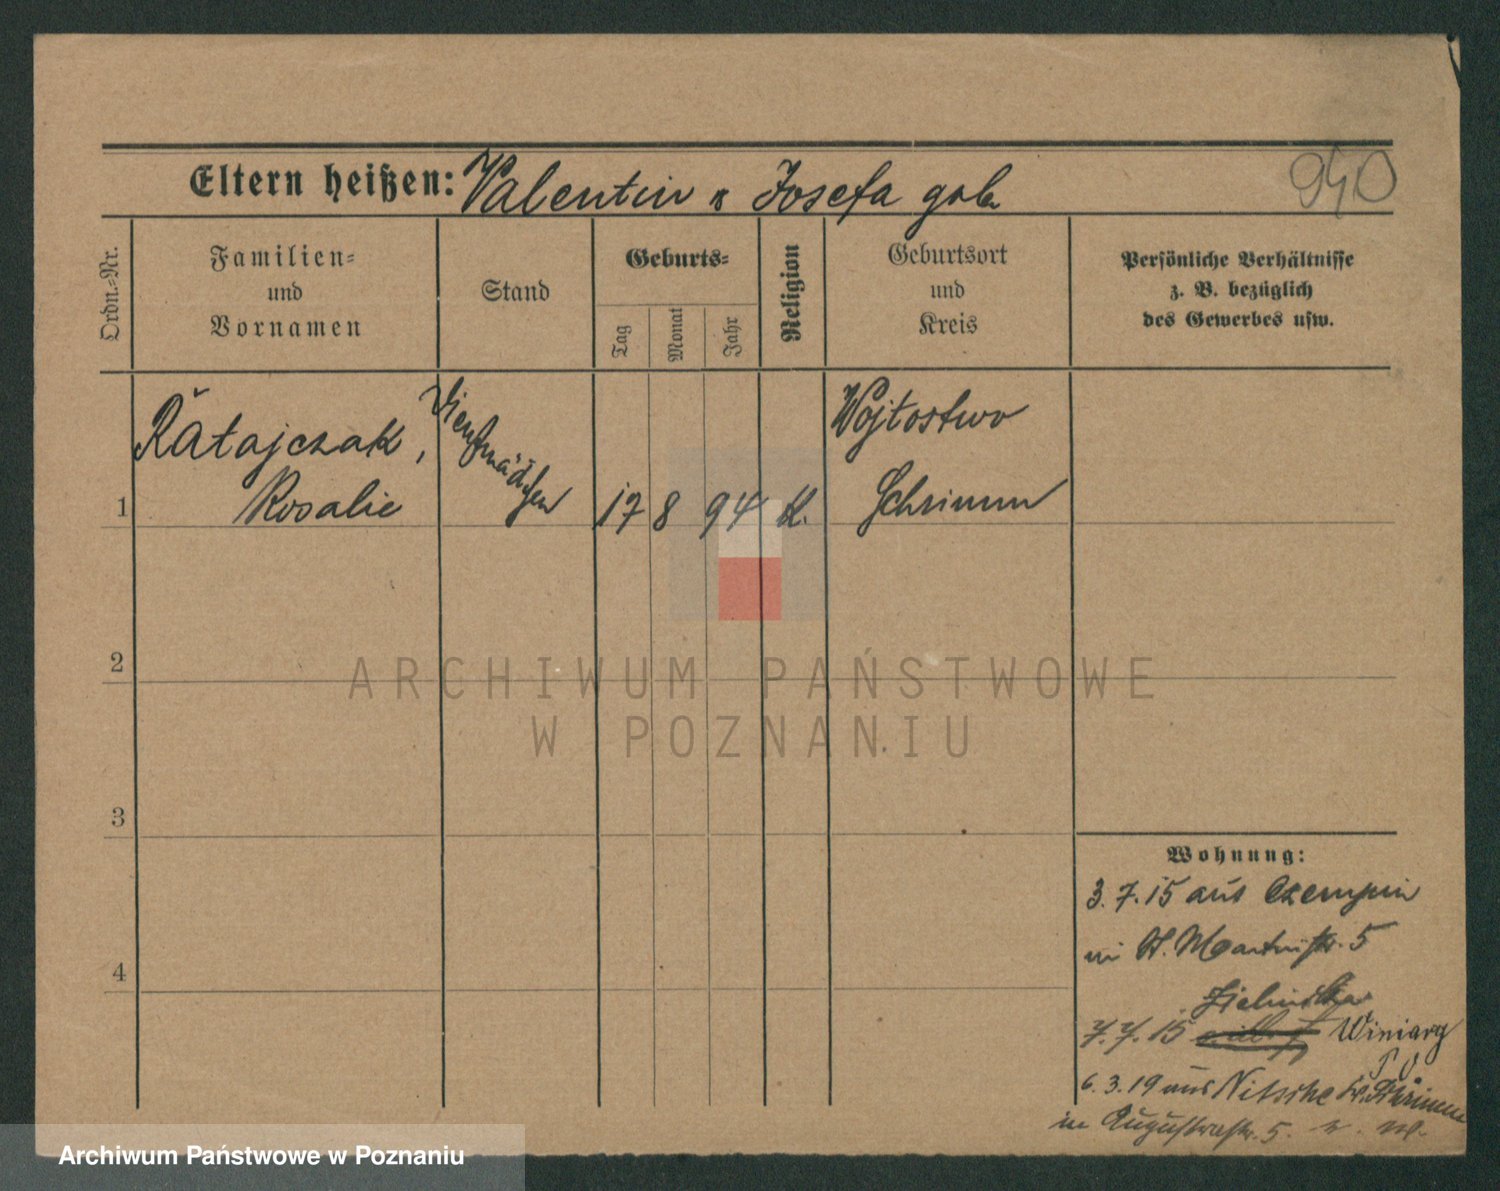 Eltern heißen: Valentin u Josefa geb.
940
Ordn.-Nr.
Familien-
und
Vornamen
Stand
Geburts-
Tag
Monat
Jahr
Religion
Geburtsort
und
Kreis
Persönliche Verhältnisse
z. B. bezüglich
des Gewerbes usw.
1
Ratajczak,
Rosalie
Dienstmädchen
17 8 94 k.
Wojtostwo
Schrimm
2
3
4
ARCHIWUM PAŃSTWOWE
W POZNANIU
Wohnung:
3.7.15 aus Czempin
in St. Martinstr. 5
Zielinska
7.7.15 Winiary
6.3.19 aus Nitsche Kr. Schrimm
in Augustastr. 5.
Archiwum Państwowe w Poznaniu